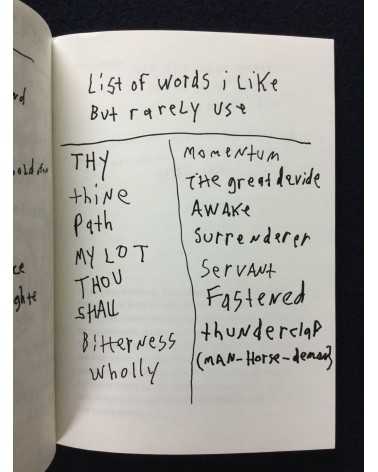 List of words i Like
But rarely use
THY
thine
Path
MY LOT
THOU
SHALL
Bitterness
wholly
MOMENTUM
THE great devide
AWAKE
Surrenderer
SERVANT
Fastened
thunderclap
(MAN-Horse-demon)